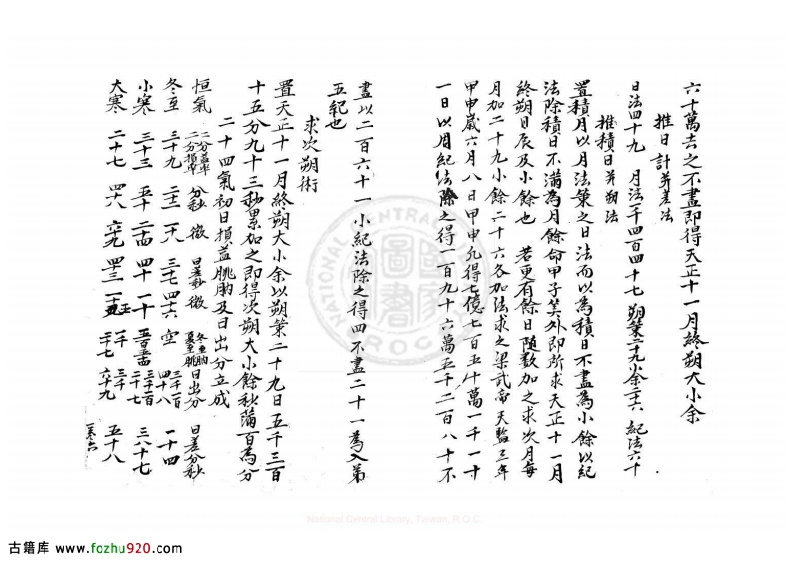 六十萬去之不盡即得天正十一月終朔大小余
推日計并差法
日法四十九　月法千四百四十七　朔策二十九小余二十六　紀法六十
推積日并朔法
置積月以月法策之日法而以為積日不盡為小餘以紀
法除積日不滿為月餘命甲子筭外即所求天正十一月
終朔日辰及小餘也　若更有餘日随数加之求次月每
月加二十九小餘二十六各加法求之梁武帝天監三年
甲申歲六月八日甲申九得七億七百五十萬一千一十
一日以周紀法除之得一百九十六萬五千二百八十不
盡以二百六十一小紀法除之得四不盡二十一為入第
五紀也
求次朔術
置天正十一月終朔大小余以朔策二十九日五千三百
十五分九十三秒累加之即得次朔大小餘秋蒲百為分
二十四氣初日損益朓朒及日出分立成
恒氣　二分益率二分損率　分秒　微　日差微　冬至朒夏至朓　日出分　日差分秒
冬至　三十九
小寒　三十三　五十　二十四　四十一　十
大寒　二十七　四十八　六十九　四十三
National Central Library, Taiwan, R.O.C.
NATIONAL CENTRAL LIBRARY
R.O.C.
古籍库 www.fozhu920.com